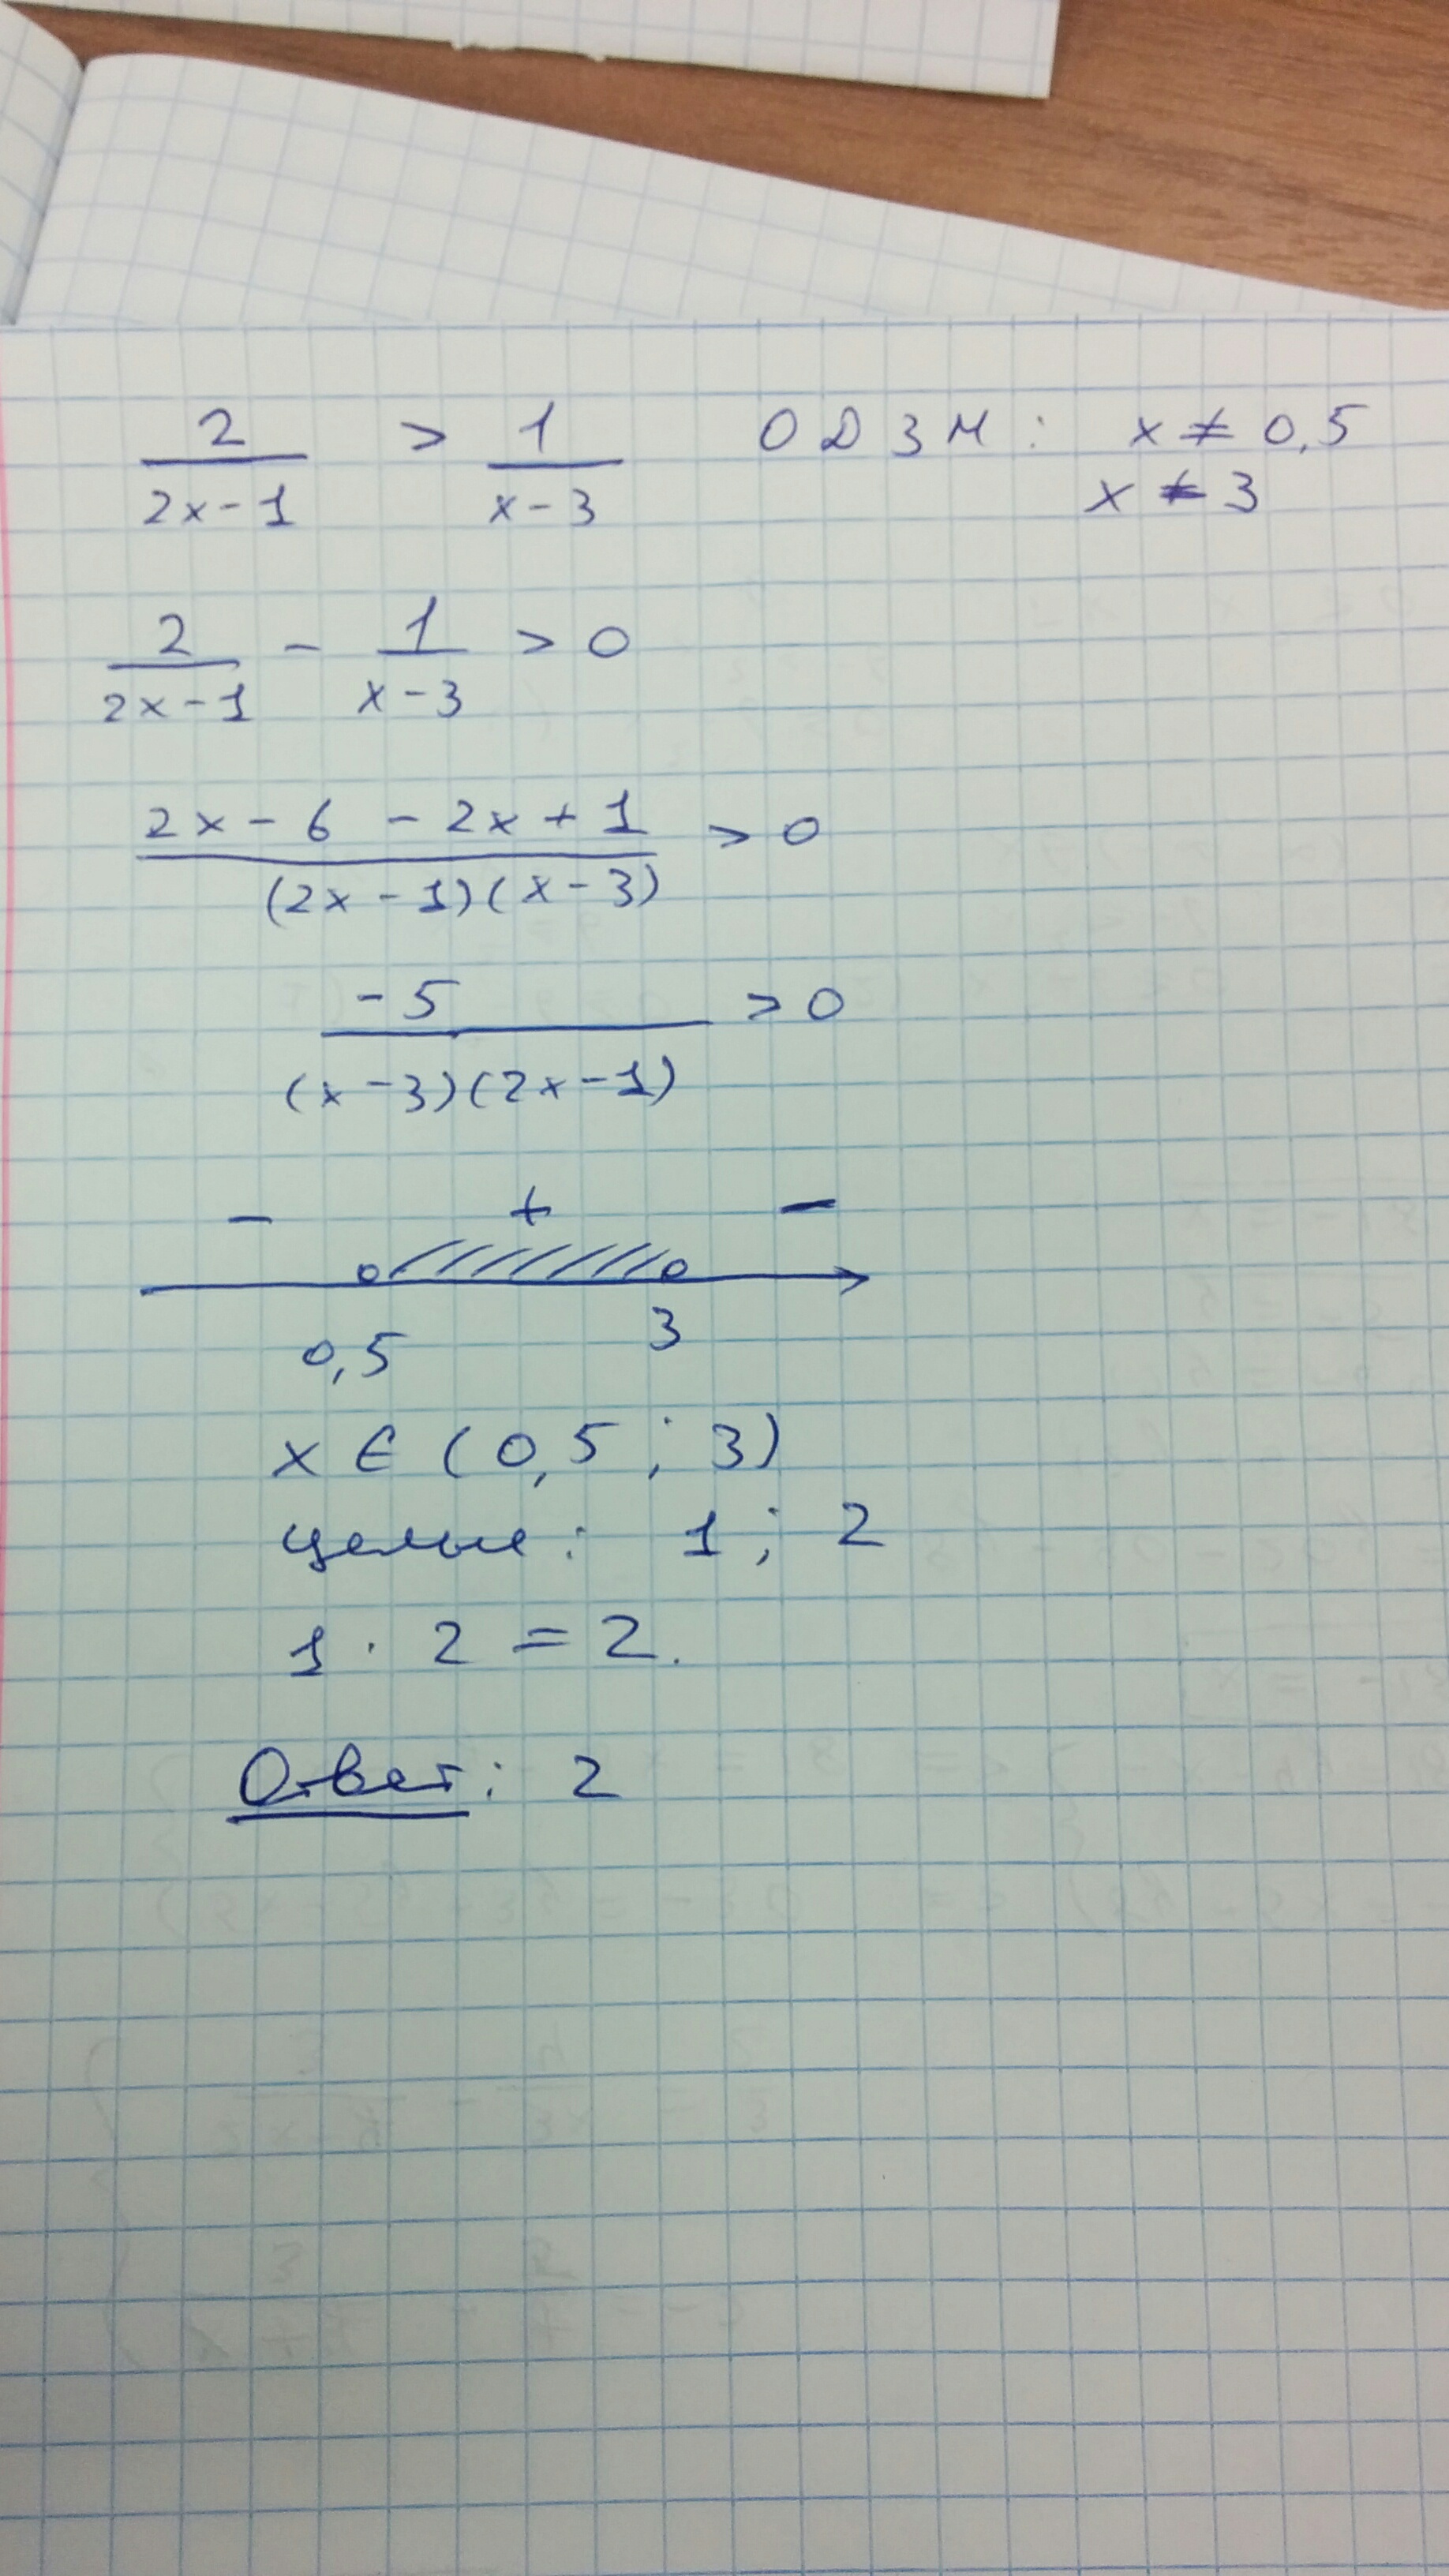 2/(2x-1) > 1/(x-3) ОДЗМ: x ≠ 0,5
x ≠ 3
2/(2x-1) - 1/(x-3) > 0
(2x-6-2x+1)/((2x-1)(x-3)) > 0
-5/((x-3)(2x-1)) > 0
- + -
0,5 3
x ∈ (0,5; 3)
целые: 1; 2
1 · 2 = 2.
Ответ: 2